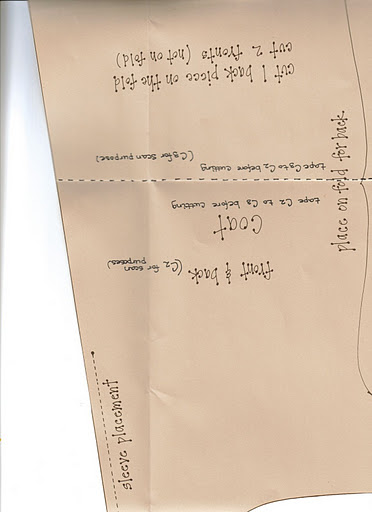 Coat
front & back
(C2 for scan
purposes)
tape C2 to C3 before cutting
tape C3 to C2 before cutting
(C3 for scan purpose)
cut 1 back piece on the fold
cut 2 fronts (not on fold)
place on fold for back
sleeve placement